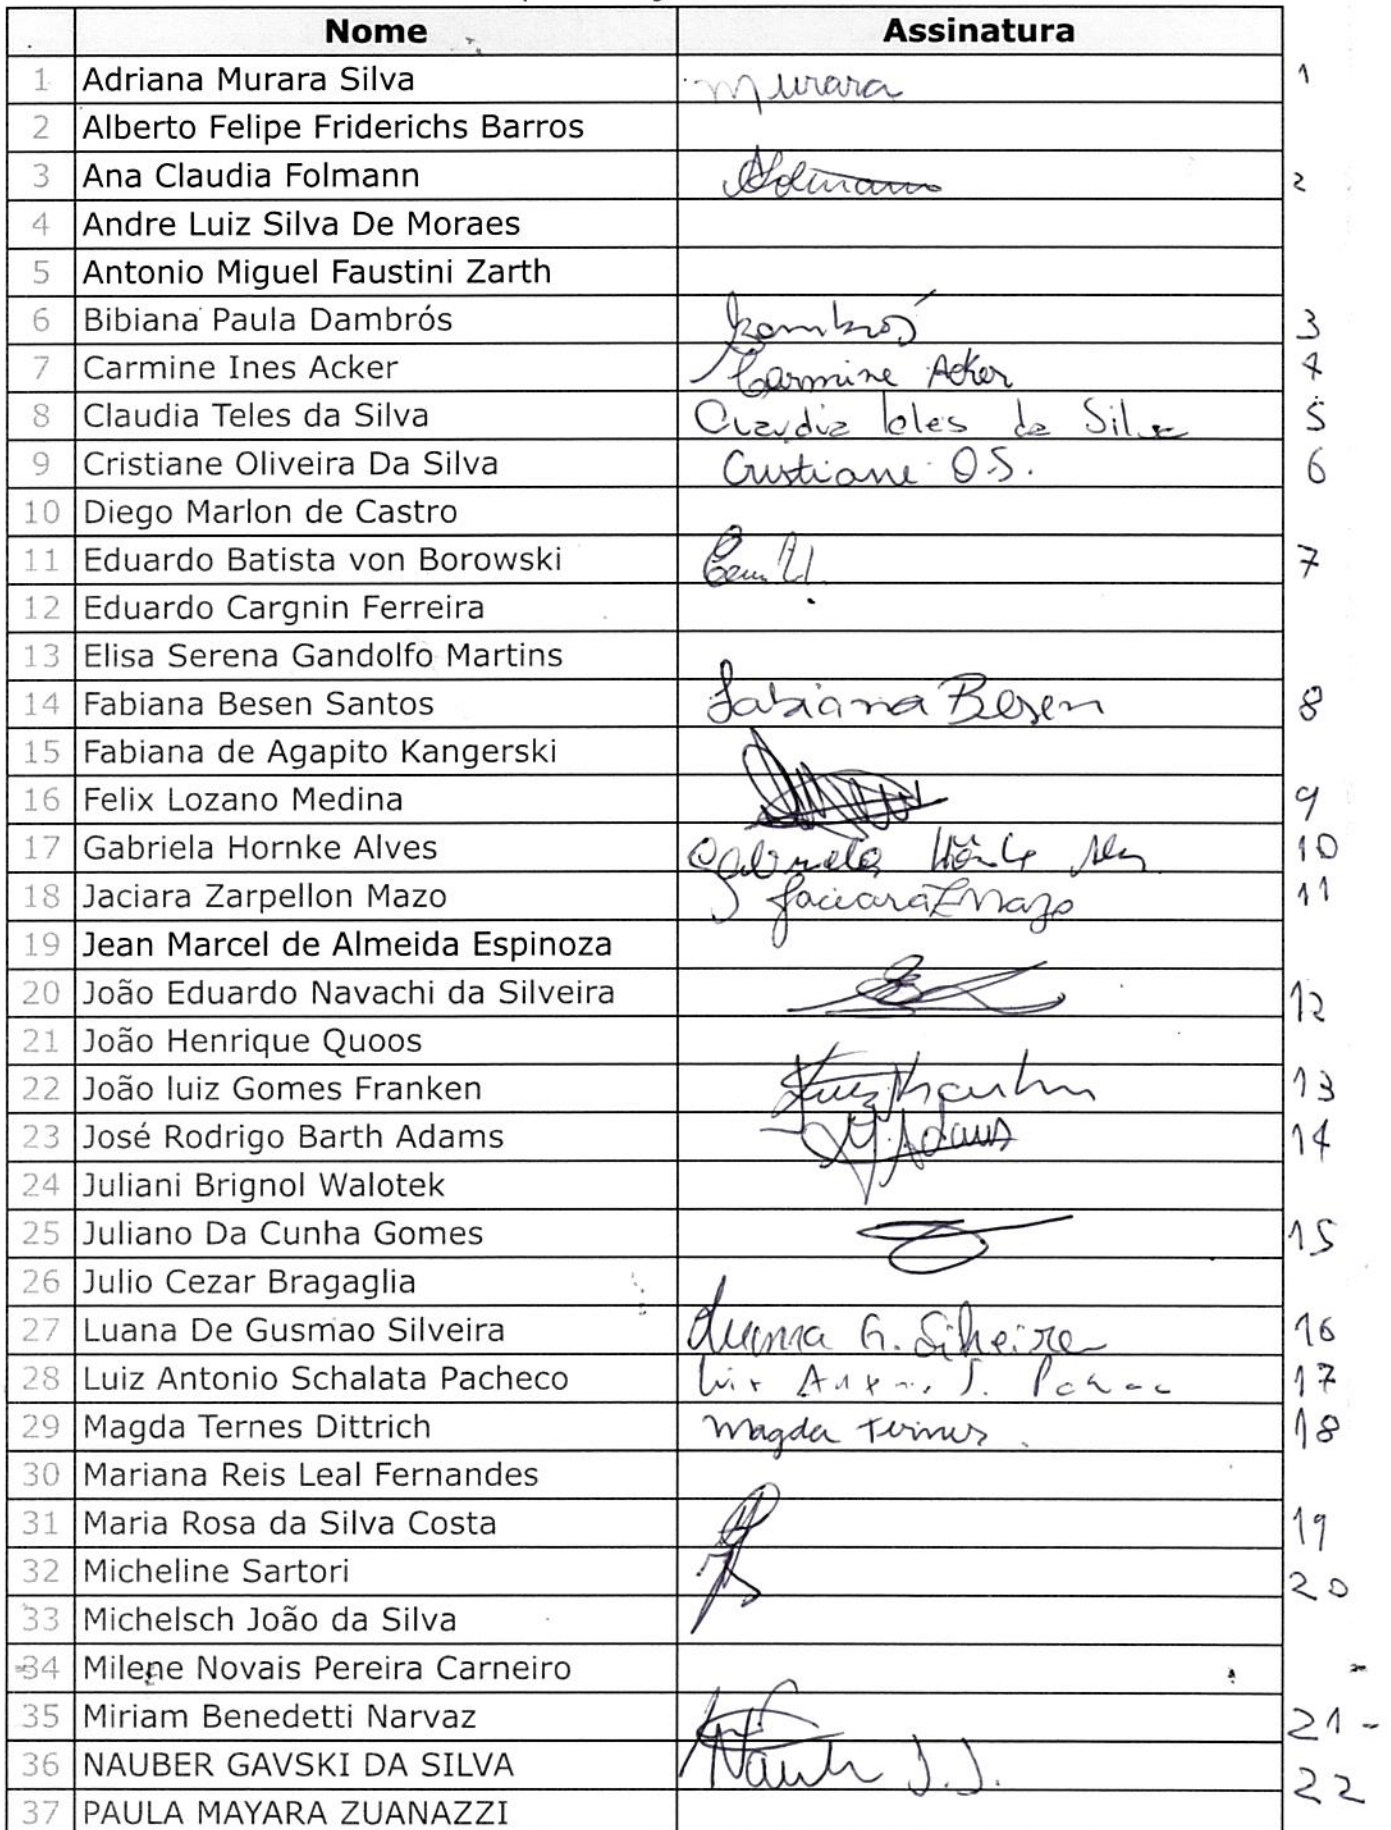 Nome Assinatura
1 Adriana Murara Silva Murara 1
2 Alberto Felipe Friderichs Barros
3 Ana Claudia Folmann 2
4 Andre Luiz Silva De Moraes
5 Antonio Miguel Faustini Zarth
6 Bibiana Paula Dambrós Dambrós 3
7 Carmine Ines Acker Carmine Acker 4
8 Claudia Teles da Silva Claudia Teles da Silva 5
9 Cristiane Oliveira Da Silva Cristiane O.S. 6
10 Diego Marlon de Castro
11 Eduardo Batista von Borowski 7
12 Eduardo Cargnin Ferreira
13 Elisa Serena Gandolfo Martins
14 Fabiana Besen Santos Fabiana Besen 8
15 Fabiana de Agapito Kangerski
16 Felix Lozano Medina 9
17 Gabriela Hornke Alves Gabriela 10
18 Jaciara Zarpellon Mazo Jaciara Z Mazo 11
19 Jean Marcel de Almeida Espinoza
20 João Eduardo Navachi da Silveira 12
21 João Henrique Quoos
22 João luiz Gomes Franken 13
23 José Rodrigo Barth Adams Adams 14
24 Juliani Brignol Walotek
25 Juliano Da Cunha Gomes 15
26 Julio Cezar Bragaglia
27 Luana De Gusmao Silveira Luana G. Silveira 16
28 Luiz Antonio Schalata Pacheco 17
29 Magda Ternes Dittrich Magda Ternes 18
30 Mariana Reis Leal Fernandes
31 Maria Rosa da Silva Costa 19
32 Micheline Sartori 20
33 Michelsch João da Silva
34 Milene Novais Pereira Carneiro
35 Miriam Benedetti Narvaz 21 -
36 NAUBER GAVSKI DA SILVA 22
37 PAULA MAYARA ZUANAZZI